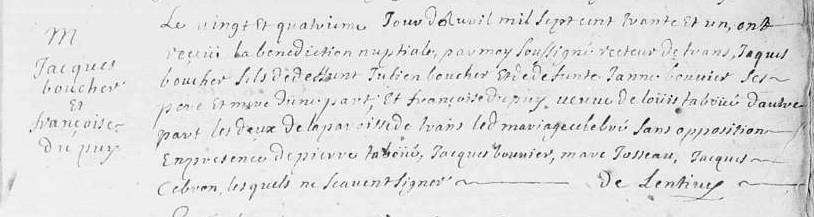 M
Jacques
boucher
Et
françoise
du puy
Le vingt Et quatrieme Jour d'avril mil sept cent trante Et un, ont
receüi La benediction nuptiale, par moy soussigné recteur de trans, Jaques
boucher fils de deffunt Julien boucher Et de defunte Janne bouvier ses
pere et mere dune part, Et françoise du puy, veuve de loüis taboüé dautre
part les deux de la paroisse de trans led mariage celebré sans opposition
En presence de pierre taboüé, Jacques bouvier, marc Josseau, Jacques
Cebron, lesquels ne scavent signer de Lentivy